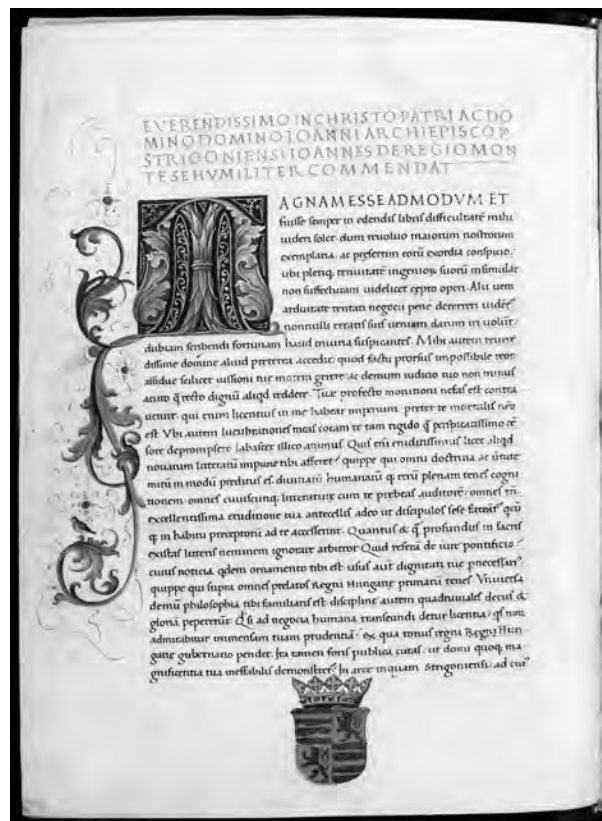 EVERENDISSIMO IN CHRISTO PATRI AC DO
MINO DOMINO IOANNI ARCHIEPISCOP
STRIGONIENSI IOANNES DE REGIO MON
TE SE HVMILITER COMMENDAT
AGNAM ESSE ADMODVM ET
fuisse semper in edendis libris difficultatē mihi
uideri solet dum reuoluo maiorum nostrorum
exemplaria. ac presertim eorū exordia conspicio.
ubi pleriq; tenuitatē ingenioꝝ suorū insimulāt
non suffecturam uidelicet cepto operi. Alii uero
arduitate tentati negocii pene deterreri uidēt̄
nonnulli erratis suis ueniam darum in uolūt
dubiam scribendi fortunam haud iniuria suspicantes. Mihi autem reuerē
dissime domine aliud preterea accedit: quod factu prorsus impossibile reor:
assidue scilicet iussioni tue morem gerere: ac demum iudicio tuo non minus
acuto q̄ recto dignū aliqd reddere. Tue profecto monitioni nefas est contra
uenire. qui enim licentius in me habeat imperium preter te mortalis nēo
est. Vbi autem lucubrationes meas coram te tam rigido q̄ perspicacissimo cē
sore deprompsero labascet illico animus. Quis eni eruditissimus licet aliqd
nouarum litterarū impune tibi afferet? quippe qui omni doctrina ac uirtute
mirū in modū preditus es. diuinarū humanarū q; rerū plenam tenes cogni
tionem. omnes cuiuscunq; litterature cum te prebeas auditorē: omnes tn̄
excellentissima eruditione tua antecellis adeo ut discipulos sese
q in habitu preceptorū ad te accesserint. Quantus & q̄ profundus in sacris
existas litteris neminem ignorare arbitror. Quid referā de iure pontificio?
cuius noticia qdem ornamento tibi est. usus aūt dignitati tue pnecessari
quippe qui supra omnes prelatos Regni Hungarie primatū tenes. Vniuersa
demū philosophia tibi familiaris est discipline autem quadriuiales decus &
gloriā pepererūt. Q si ad negocia humana transeundi detur licentia: qs non
admirabitur immensam tuam prudentiā: ex qua totius regni Regni Hun
garie gubernatio pendet. Ita tamen foris publica curas. ut domi quoq; ma
gnificentia tua ineffabilis demonstret̄. In arce inquam Strigoniensi. ad cui